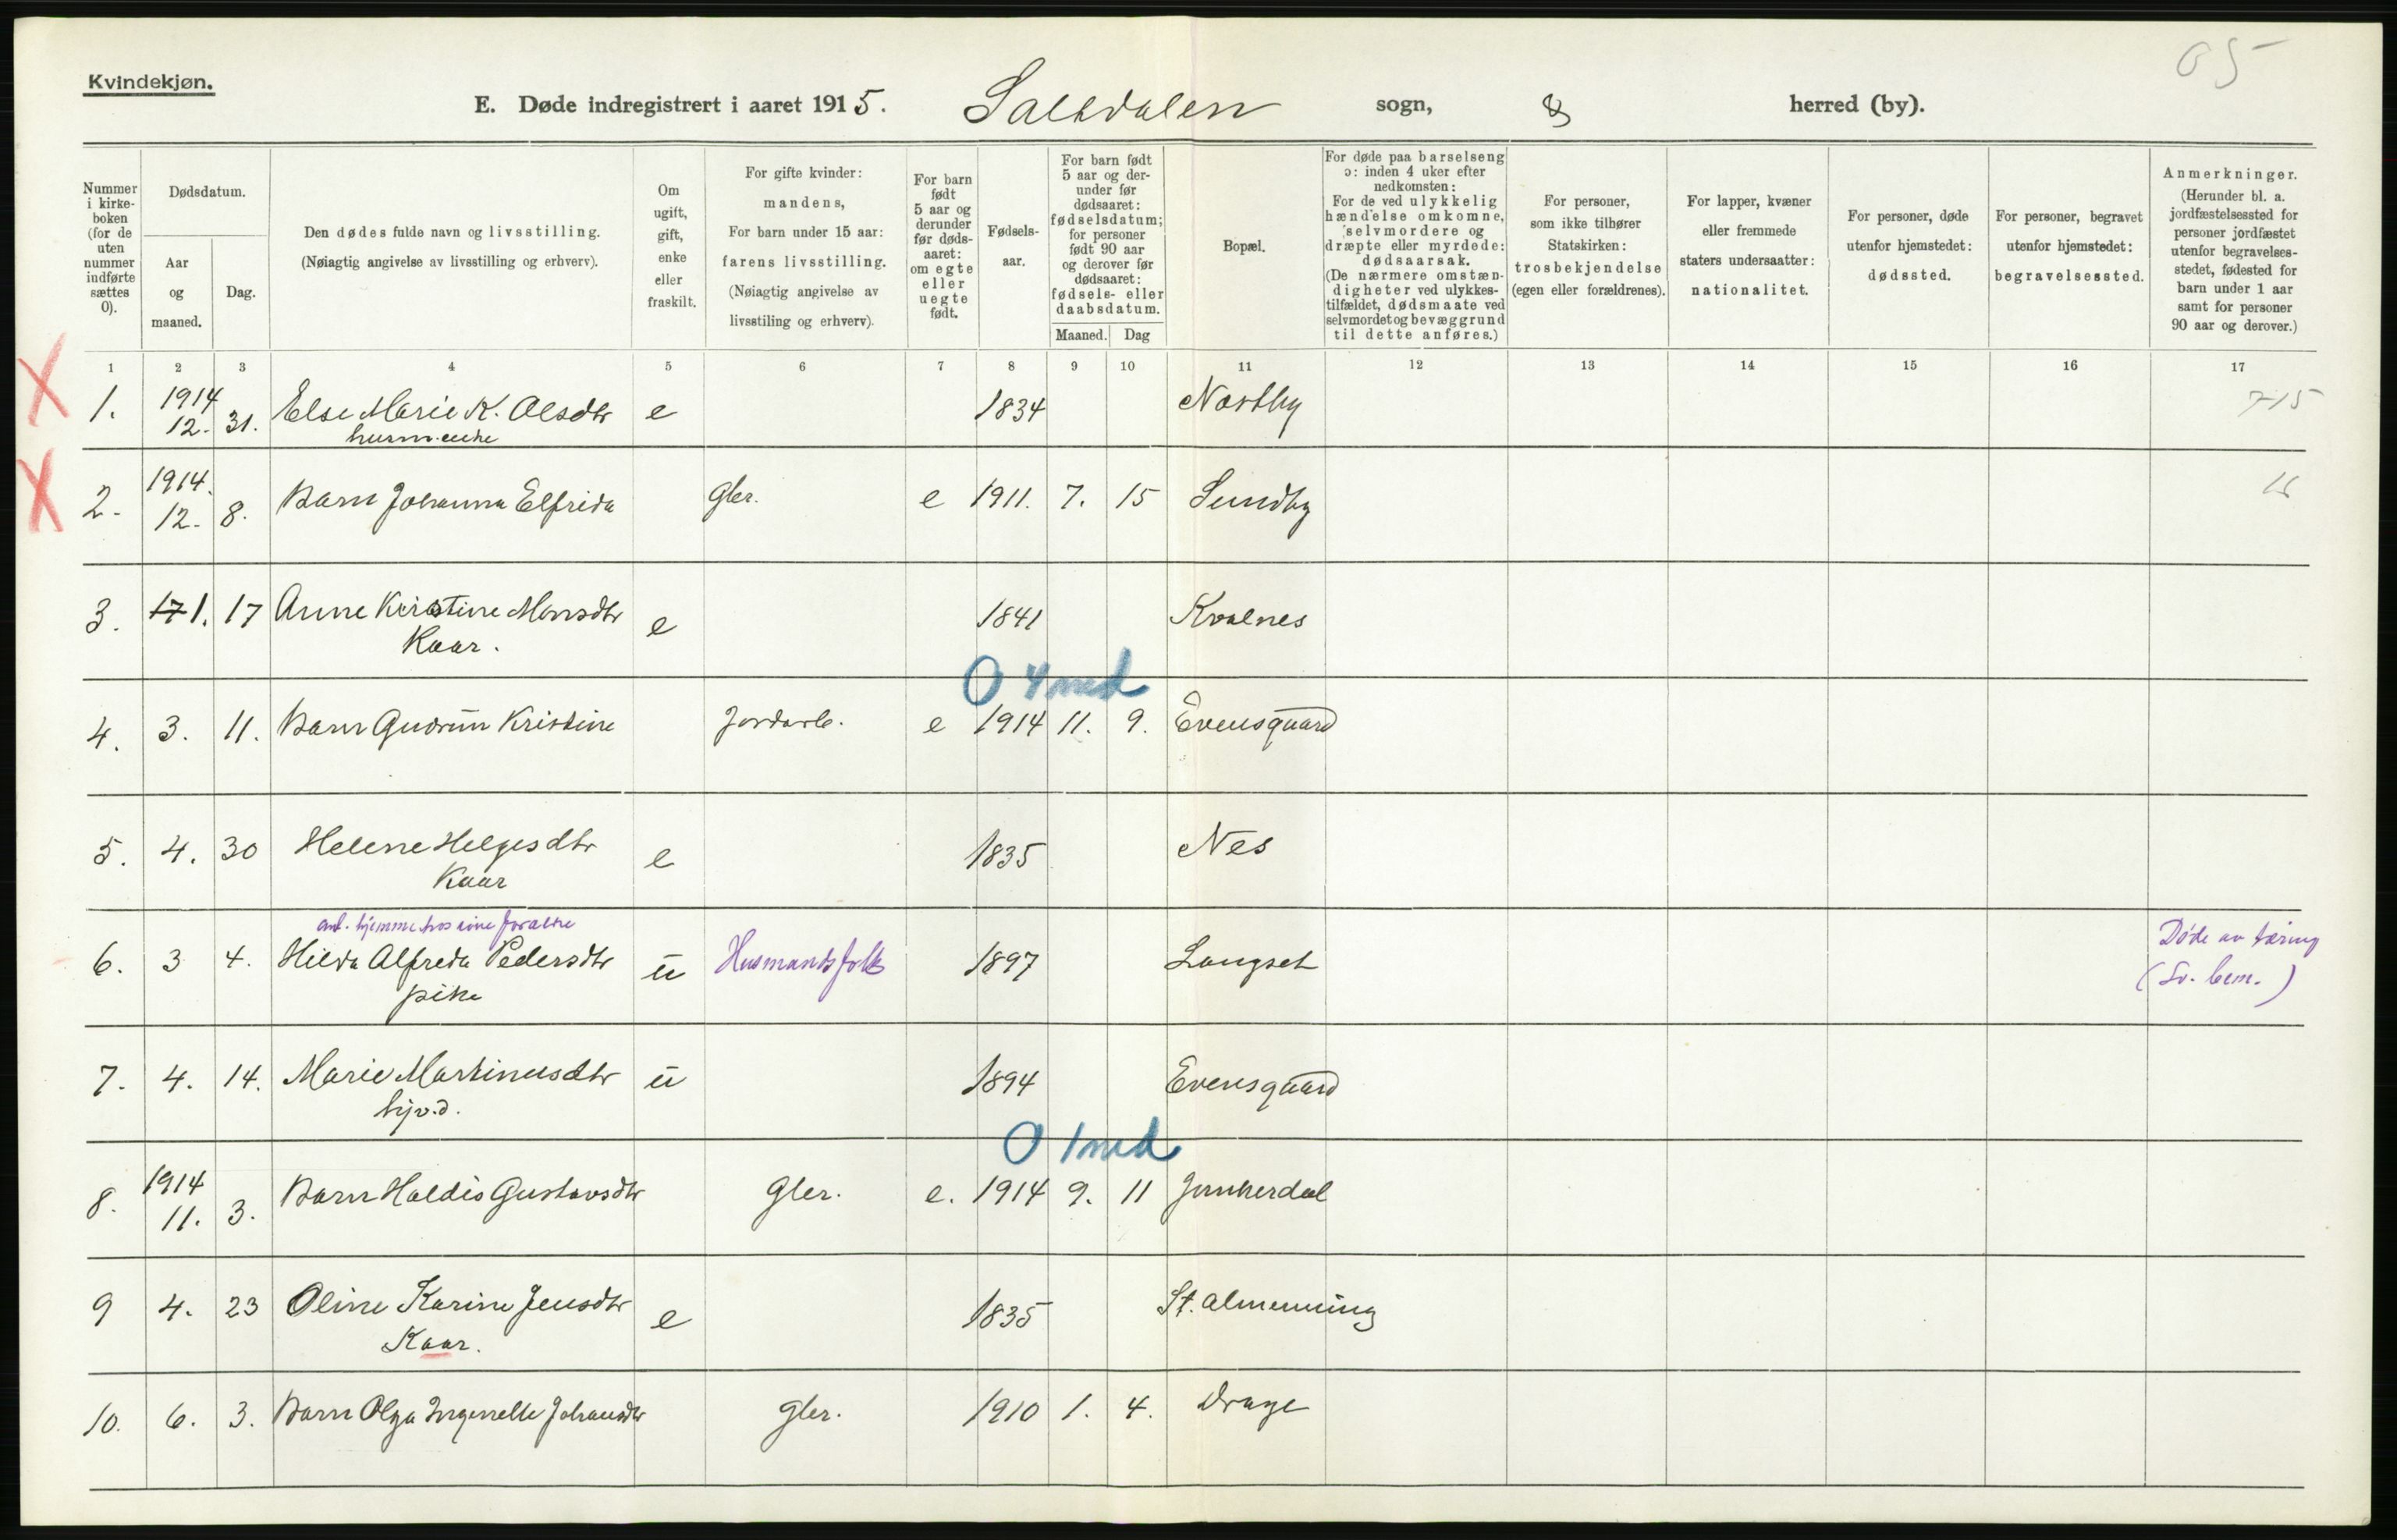 65
Kvindekjøn.
E. Døde indregistrert i aaret 1915. Saltdalen sogn, herred (by).
Nummer i kirkeboken (for de uten nummer indførte sættes 0).
Dødsdatum.
Aar og maaned.
Dag.
Den dødes fulde navn og livsstilling.
(Nøiagtig angivelse av livsstilling og erhverv).
Om ugift, gift, enke eller fraskilt.
For gifte kvinder: mandens,
For barn under 15 aar: farens livsstilling.
(Nøiagtig angivelse av livsstiling og erhverv).
For barn født 5 aar og derunder før dødsaaret: om egte eller uegte født.
Fødselsaar.
For barn født 5 aar og derunder før dødsaaret: fødselsdatum; for personer født 90 aar og derover før dødsaaret: fødsels- eller daabsdatum.
Maaned. Dag
Bopæl.
For døde paa barselseng ɔ: inden 4 uker efter nedkomsten: For de ved ulykkelig hændelse omkomne, selvmordere og dræpte eller myrdede: dødsaarsak. (De nærmere omstændigheter ved ulykkestilfældet, dødsmaate ved selvmordet og bevæggrund til dette anføres.)
For personer, som ikke tilhører Statskirken: trosbekjendelse (egen eller forældrenes).
For lapper, kvæner eller fremmede staters undersaatter: nationalitet.
For personer, døde utenfor hjemstedet: dødssted.
For personer, begravet utenfor hjemstedet: begravelsessted.
Anmerkninger.
(Herunder bl. a. jordfæstelsessted for personer jordfæstet utenfor begravelsesstedet, fødested for barn under 1 aar samt for personer 90 aar og derover.)
1 2 3 4 5 6 7 8 9 10 11 12 13 14 15 16 17
X 1. 1914 12. 31. Else Marie K. Olsdtr e 1834 Nestby 715
husm.enke
X 2. 1914. 12. 8. Barn Johanna Elfrida gbr. e 1911. 7. 15 Sundby
3. 17 1. 17 Anne Kirstine Monsdtr e 1841 Kvalnes
Kaar.
0 4 md
4. 3. 11. Barn Gudrun Kristine Jordarb. e 1914 11. 9. Evensgaard
5. 4. 30 Helene Helgesdtr e 1835 Nes
Kaar
ant. hjemme hos sine foraldre
6. 3 4. Hilda Alfreda Pedersdtr u Husmandsfolk 1897 Langset Døde av tæring
pike (Sv. bem.)
7. 4. 14. Marie Martinusdtr u 1894 Evensgaard
hjv.d.
0 1 md
8. 1914 11. 3. Barn Haldis Gustavsdtr Gbr. e. 1914 9. 11 Junkerdal
9 4. 23 Oline Karine Jensdtr e 1835 St. almenning
Kaar.
10. 6. 3. Barn Olga Ingenelle Johansdtr gbr. 1910 1. 4. Drage